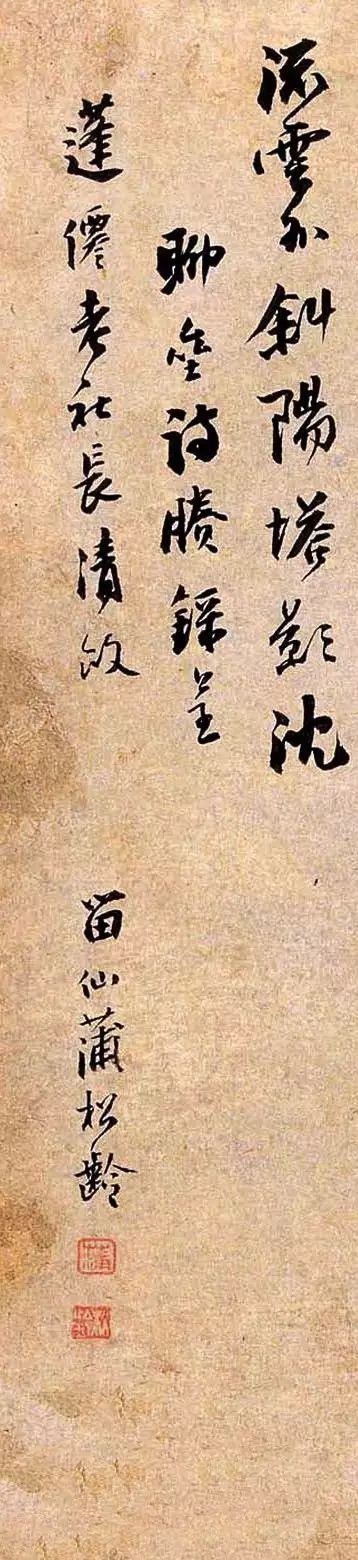 流雲外斜陽塔影沈
聊齋詩賸錄呈
蓬僊老社長清政
畱仙蒲松齡